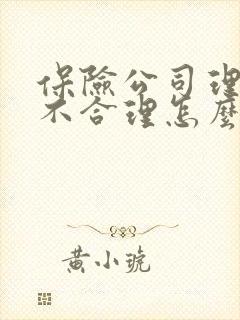 保險公司理
不合理怎麼
黃小琥